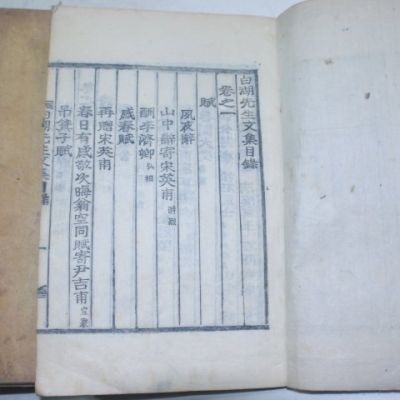 白湖先生文集目錄
卷之一
賦
夙夜辭
山中辭寄宋英甫 時烈
酬李濟卿
感春賦
再贈宋英甫
春日有感敬次晦翁空同賦寄尹吉甫 宣擧
弔 子賦
白湖先生文集目錄 一